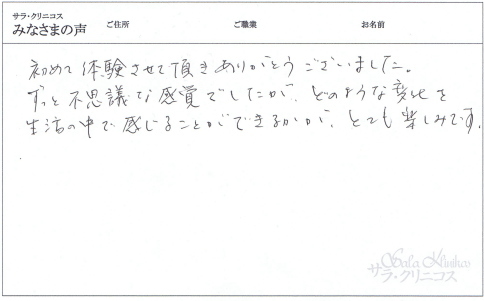 サラ・クリニコス
みなさまの声 ご住所 ご職業 お名前
初めて体験させて頂きありがとうございました。
ずっと不思議な感覚でしたが、どのような変化を
生活の中で感じることができるかが、とても楽しみです。
Sala Klinikos
サラ・クリニコス